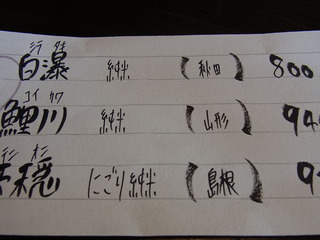 シラ タキ
白瀑 純米 (秋田) 800
コイ カワ
鯉川 純米 (山形) 94
穏 にごり純米 (島根) 9